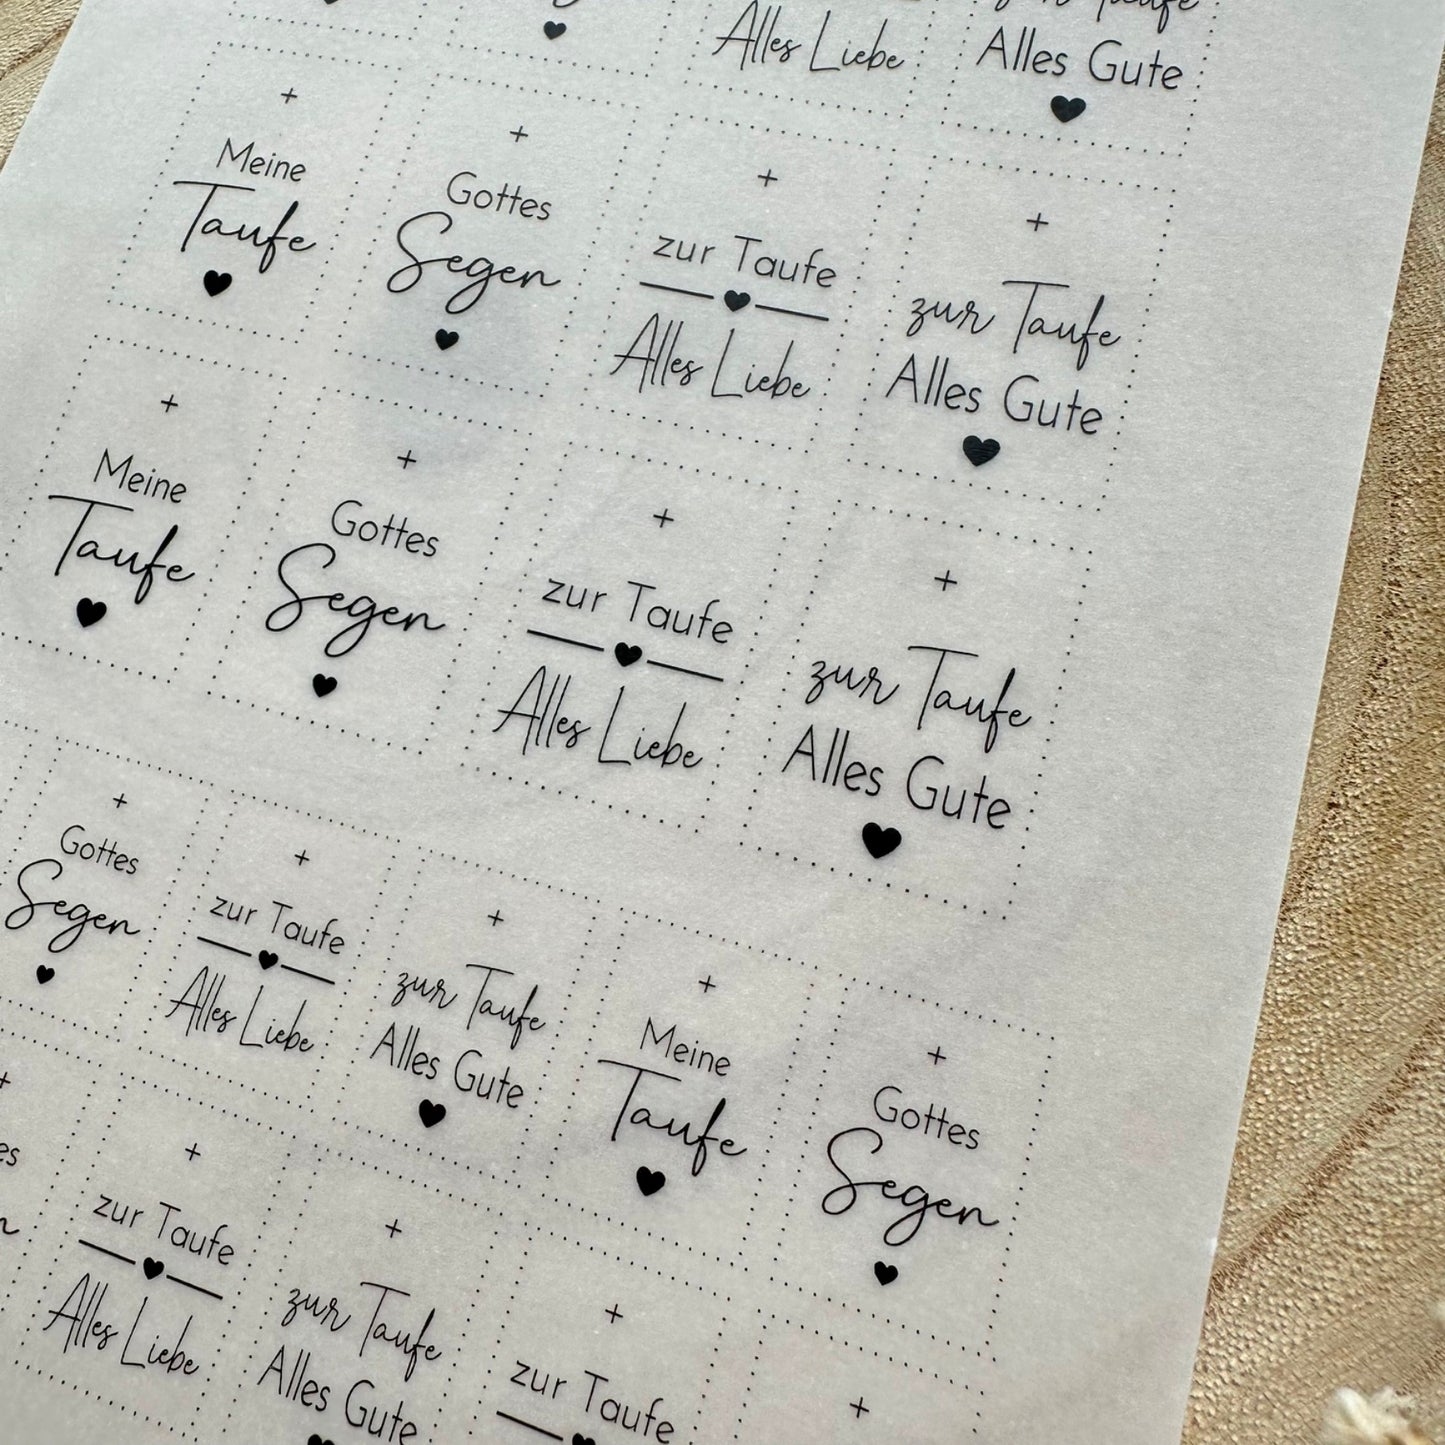 Alles Liebe
zur Taufe
Alles Gute
Meine
Taufe
Gottes
Segen
zur Taufe
Alles Liebe
zur Taufe
Alles Gute
Meine
Taufe
Gottes
Segen
zur Taufe
Alles Liebe
zur Taufe
Alles Gute
Gottes
Segen
zur Taufe
Alles Liebe
zur Taufe
Alles Gute
Meine
Taufe
Gottes
Segen
zur Taufe
Alles Liebe
zur Taufe
Alles Gute
zur Taufe